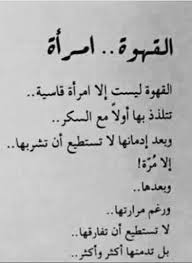 القهوة.. امرأة
القهوة ليست إلا امرأة قاسية..
تتلذذ بها أولاً مع السكر..
وبعد إدمانها لا تستطيع أن تشربها..
إلا مُرّة!
وبعدها..
ورغم مرارتها..
لا تستطيع أن تفارقها..
بل تدمنها أكثر وأكثر..